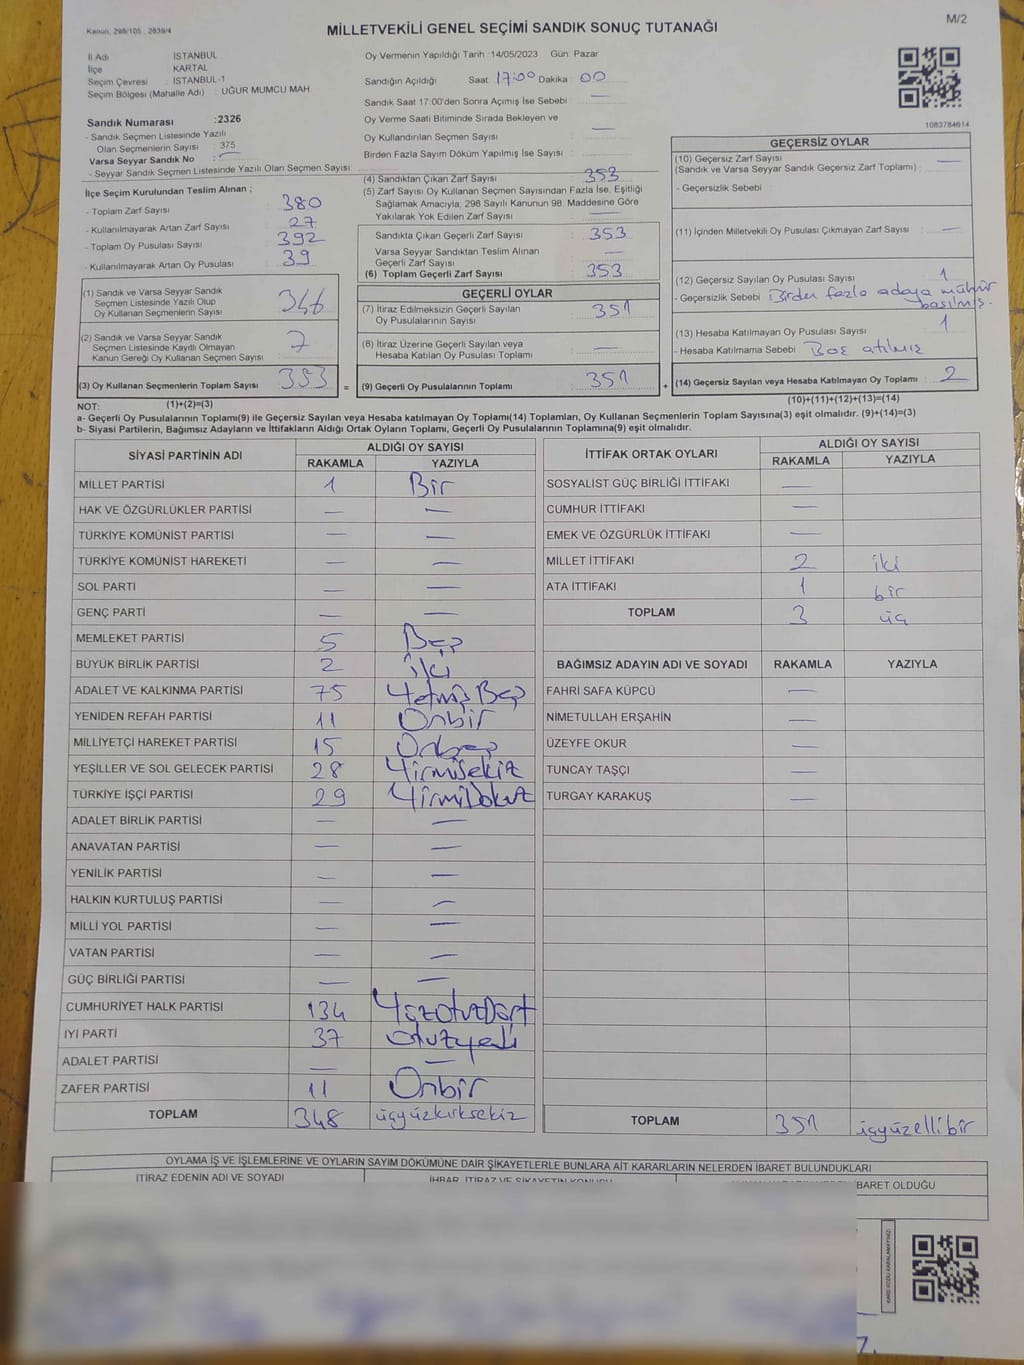 Kanun: 298/105 2839/4
MİLLETVEKİLİ GENEL SEÇİMİ SANDIK SONUÇ TUTANAĞI
M/2
İl Adı : İSTANBUL
İlçe : KARTAL
Seçim Çevresi : İSTANBUL-1
Seçim Bölgesi (Mahalle Adı) : UĞUR MUMCU MAH
Sandık Numarası :2326
- Sandık Seçmen Listesinde Yazılı
Olan Seçmenlerin Sayısı : 375
Varsa Seyyar Sandık No : —
- Seyyar Sandık Seçmen Listesinde Yazılı Olan Seçmen Sayısı:
Oy Vermenin Yapıldığı Tarih :14/05/2023 Gün: Pazar
Sandığın Açıldığı Saat 17:00 Dakika : 00
Sandık Saat 17:00'den Sonra Açımış İse Sebebi : —
Oy Verme Saati Bitiminde Sırada Bekleyen ve
Oy Kullandırılan Seçmen Sayısı : —
Birden Fazla Sayım Döküm Yapılmış İse Sayısı :
1083784614
İlçe Seçim Kurulundan Teslim Alınan ;
- Toplam Zarf Sayısı : 380
- Kullanılmayarak Artan Zarf Sayısı : 27
- Toplam Oy Pusulası Sayısı : 392
- Kullanılmayarak Artan Oy Pusulası : 39
(1) Sandık ve Varsa Seyyar Sandık
Seçmen Listesinde Yazılı Olup
Oy Kullanan Seçmenlerin Sayısı : 346
(2) Sandık ve Varsa Seyyar Sandık
Seçmen Listesinde Kayıtlı Olmayan
Kanun Gereği Oy Kullanan Seçmen Sayısı : 7
(3) Oy Kullanan Seçmenlerin Toplam Sayısı : 353 =
(4) Sandıktan Çıkan Zarf Sayısı : 353
(5) Zarf Sayısı Oy Kullanan Seçmen Sayısından Fazla İse, Eşitliği
Sağlamak Amacıyla, 298 Sayılı Kanunun 98. Maddesine Göre
Yakılarak Yok Edilen Zarf Sayısı : —
Sandıkta Çıkan Geçerli Zarf Sayısı : 353
Varsa Seyyar Sandıktan Teslim Alınan
Geçerli Zarf Sayısı : —
(6) Toplam Geçerli Zarf Sayısı : 353
GEÇERLİ OYLAR
(7) İtiraz Edilmeksizin Geçerli Sayılan
Oy Pusulalarının Sayısı : 351
(8) İtiraz Üzerine Geçerli Sayılan veya
Hesaba Katılan Oy Pusulası Toplamı : —
(9) Geçerli Oy Pusulalarının Toplamı : 351 +
GEÇERSİZ OYLAR
(10) Geçersiz Zarf Sayısı : —
(Sandık ve Varsa Seyyar Sandık Geçersiz Zarf Toplamı)
- Geçersizlik Sebebi :
(11) İçinden Milletvekili Oy Pusulası Çıkmayan Zarf Sayısı : —
(12) Geçersiz Sayılan Oy Pusulası Sayısı : 1
- Geçersizlik Sebebi : Birden fazla adaya mühür
basılmış.
(13) Hesaba Katılmayan Oy Pusulası Sayısı : 1
- Hesaba Katılmama Sebebi : Boş atılmış
(14) Geçersiz Sayılan veya Hesaba Katılmayan Oy Toplamı : 2
NOT: (1)+(2)=(3)
(10)+(11)+(12)+(13)=(14)
a- Geçerli Oy Pusulalarının Toplamı(9) ile Geçersiz Sayılan veya Hesaba katılmayan Oy Toplamı(14) Toplamları, Oy Kullanan Seçmenlerin Toplam Sayısına(3) eşit olmalıdır. (9)+(14)=(3)
b- Siyasi Partilerin, Bağımsız Adayların ve İttifakların Aldığı Ortak Oyların Toplamı, Geçerli Oy Pusulalarının Toplamına(9) eşit olmalıdır.
SİYASİ PARTİNİN ADI ALDIĞI OY SAYISI
RAKAMLA YAZIYLA
MİLLET PARTİSİ 1 Bir
HAK VE ÖZGÜRLÜKLER PARTİSİ — —
TÜRKİYE KOMÜNİST PARTİSİ — —
TÜRKİYE KOMÜNİST HAREKETİ — —
SOL PARTİ — —
GENÇ PARTİ — —
MEMLEKET PARTİSİ 5 Beş
BÜYÜK BİRLİK PARTİSİ 2 İki
ADALET VE KALKINMA PARTİSİ 75 Yetmiş Beş
YENİDEN REFAH PARTİSİ 11 Onbir
MİLLİYETÇİ HAREKET PARTİSİ 15 Onbeş
YEŞİLLER VE SOL GELECEK PARTİSİ 28 YirmiSekiz
TÜRKİYE İŞÇİ PARTİSİ 29 YirmiDokuz
ADALET BİRLİK PARTİSİ — —
ANAVATAN PARTİSİ — —
YENİLİK PARTİSİ — —
HALKIN KURTULUŞ PARTİSİ — —
MİLLİ YOL PARTİSİ — —
VATAN PARTİSİ — —
GÜÇ BİRLİĞİ PARTİSİ — —
CUMHURİYET HALK PARTİSİ 134 YüzOtuzDört
İYİ PARTİ 37 Otuzyedi
ADALET PARTİSİ — —
ZAFER PARTİSİ 11 Onbir
TOPLAM 348 üçyüzkırksekiz
İTTİFAK ORTAK OYLARI ALDIĞI OY SAYISI
RAKAMLA YAZIYLA
SOSYALİST GÜÇ BİRLİĞİ İTTİFAKI —
CUMHUR İTTİFAKI —
EMEK VE ÖZGÜRLÜK İTTİFAKI —
MİLLET İTTİFAKI 2 iki
ATA İTTİFAKI 1 bir
TOPLAM 3 üç
BAĞIMSIZ ADAYIN ADI VE SOYADI RAKAMLA YAZIYLA
FAHRİ SAFA KÜPCÜ —
NİMETULLAH ERŞAHİN —
ÜZEYFE OKUR —
TUNCAY TAŞÇI —
TURGAY KARAKUŞ —
TOPLAM 351 üçyüzellibir
OYLAMA İŞ VE İŞLEMLERİNE VE OYLARIN SAYIM DÖKÜMÜNE DAİR ŞİKAYETLERLE BUNLARA AİT KARARLARIN NELERDEN İBARET BULUNDUKLARI
İTİRAZ EDENİN ADI VE SOYADI İHBAR, İTİRAZ VE ŞİKAYETİN KONUSU BARET OLDUĞU
KARE KODU KARALAMAYINIZ!